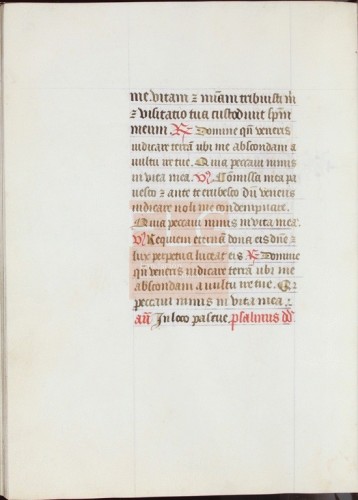 me. vitam ⁊ miam tribuisti m̄
⁊ visitatio tua custodiuit spm̄
meum R̄ Domine qn̄ veneris
iudicare terrā ubi me abscondam a
vultu ire tue. Quia peccaui nimis
in vita mea. V̄ Comissa mea pa
uesco ⁊ ante te erubesco dū veneris
iudicare noli me condempnare.
Quia peccaui nimis in vita mea.
V̄ Requiem eternā dona eis dūe ⁊
lux perpetua luceat eis R̄ Domine
qn̄ veneris iudicare terrā ubi me
abscondam a vultu ire tue. Qr
peccaui nimis in vita mea :
añ In loco pascue. psalmus dd̄.